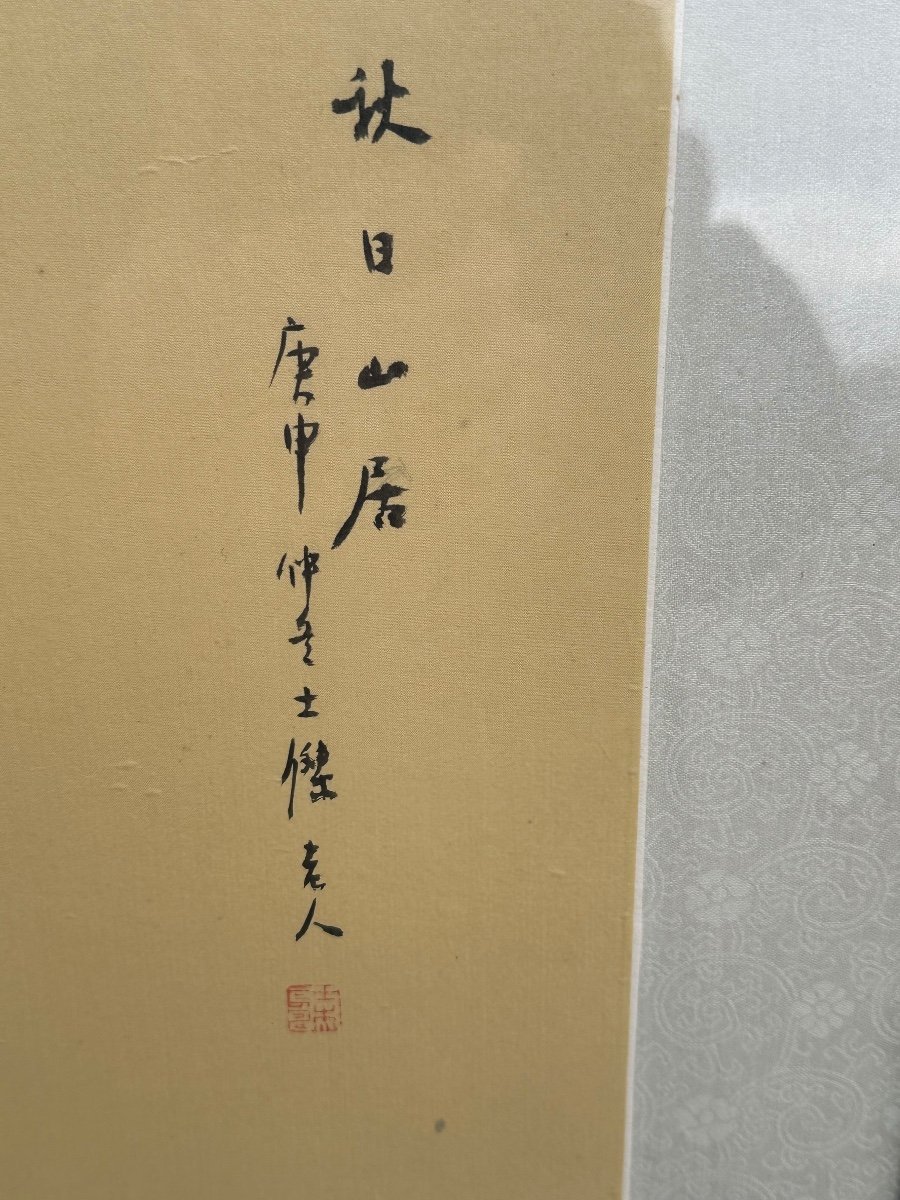 秋日山居
庚申仲冬士傑老人